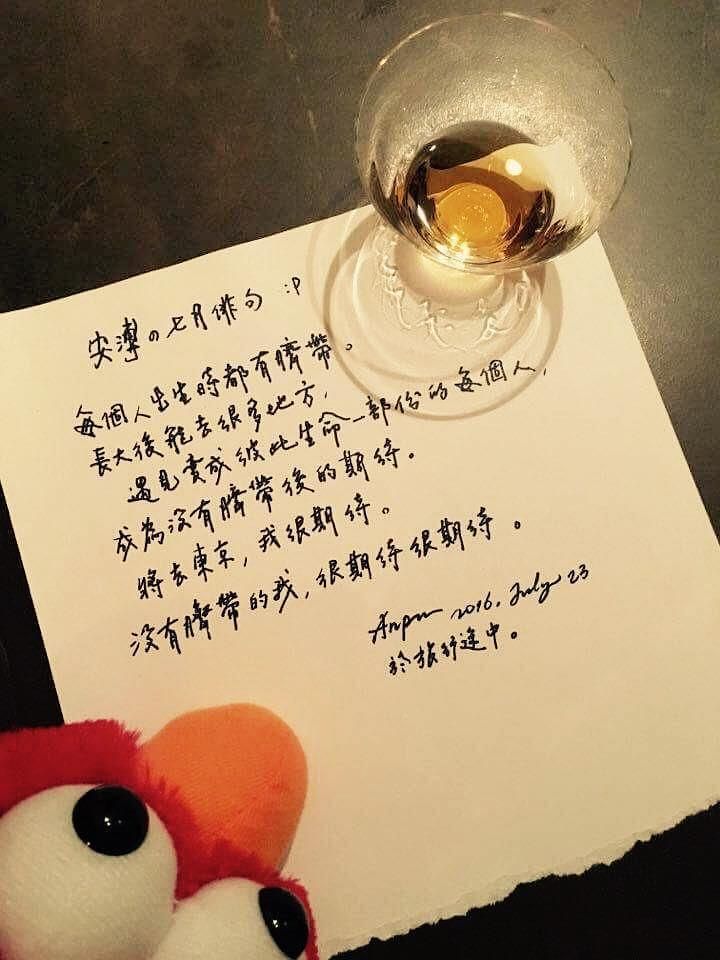 安溥の七月俳句 :P
每個人出生時都有臍帶。
長大後能去很多地方,
遇見變成彼此生命一部份的每個人,
成為沒有臍帶後的期待。
將去東京,我很期待。
沒有臍帶的我,很期待很期待。
Anpu 2016. July 23
於旅行途中。